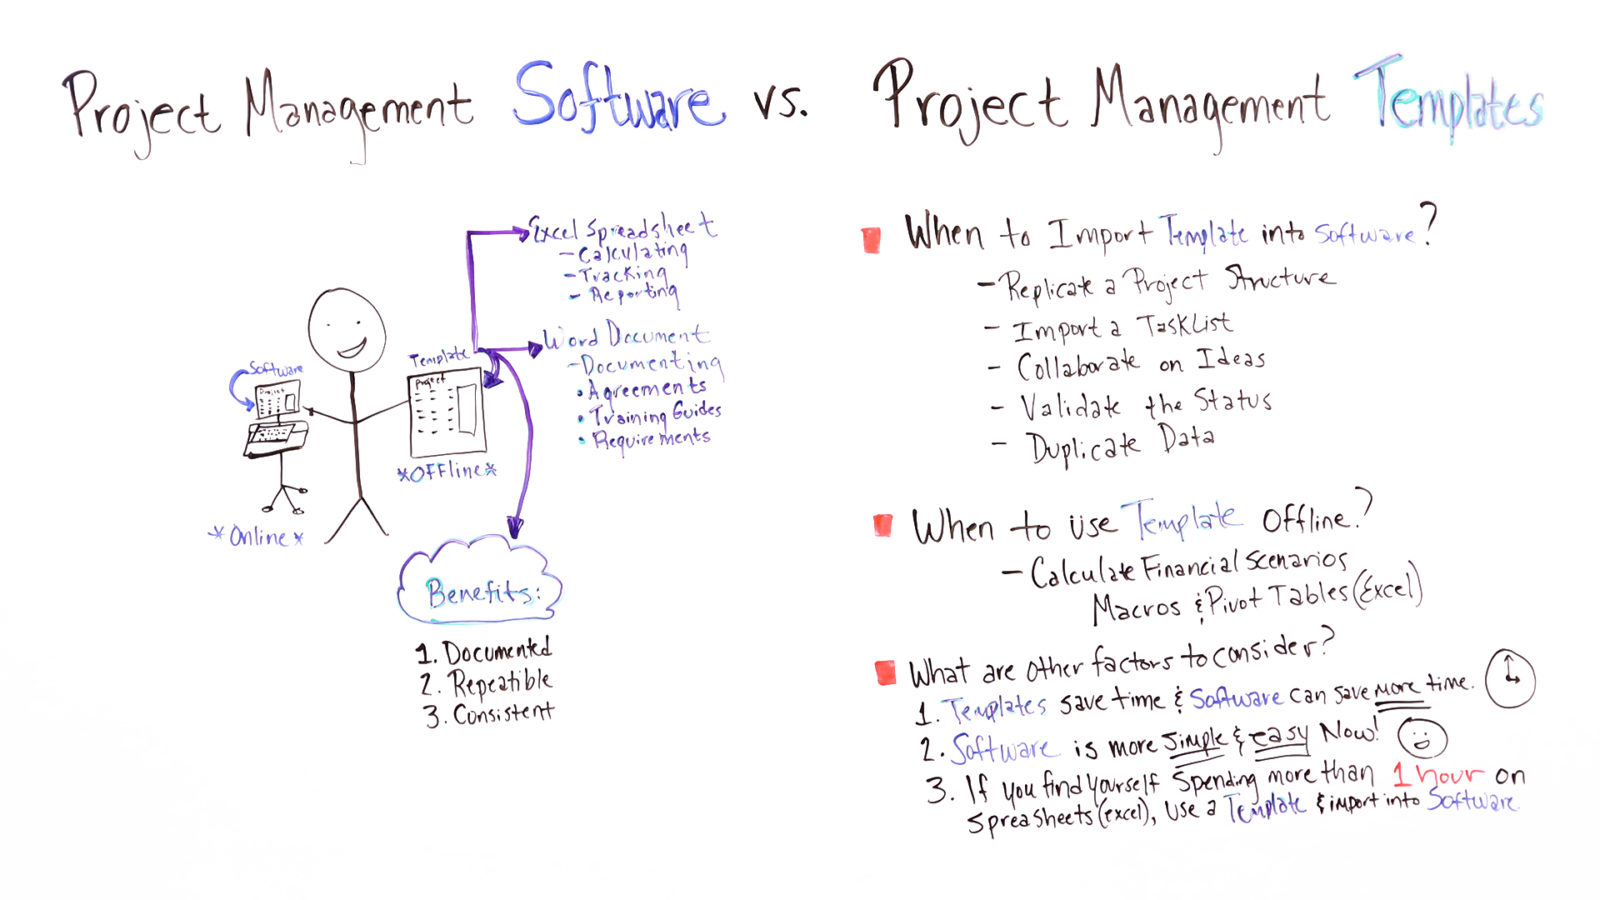 Project Management Software vs. Project Management Templates
Excel Spreadsheet
- Calculating
- Tracking
- Reporting
Word Document
- Documenting
• Agreements
• Training Guides
• Requirements
Software
Project
Template
Project
*OFFline*
*Online*
Benefits:
1. Documented
2. Repeatible
3. Consistent
When to Import Template into Software?
- Replicate a Project Structure
- Import a TaskList
- Collaborate on Ideas
- Validate the Status
- Duplicate Data
When to use Template Offline?
- Calculate Financial Scenarios
Macros & Pivot Tables (Excel)
What are other factors to consider?
1. Templates save time & Software can save more time.
2. Software is more simple & easy Now!
3. If you find yourself spending more than 1 hour on
Spreasheets (excel), use a Template & import into Software.